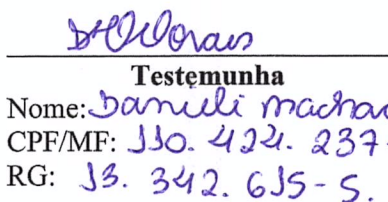 Testemunha
Nome: Danieli macha
CPF/MF: 110. 424. 237-
RG: 13. 342. 615-5.